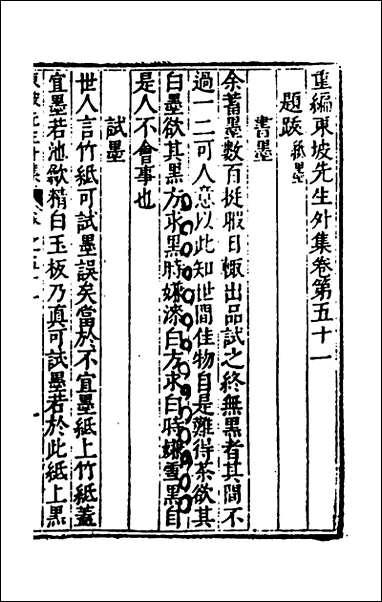 重編東坡先生外集卷第五十一
題跋 紙墨
書墨
余蓄墨數百挺暇日輙出品試之終無黑者其間不
過一二可人意以此知世間佳物自是難得茶欲其
白墨欲其黑方求黑時嫌漆白方求白時嫌雪黑自
是人不會事也
試墨
世人言竹紙可試墨誤矣當於不宜墨紙上竹紙蓋
宜墨若池歙精白玉板乃真可試墨若於此紙上黑